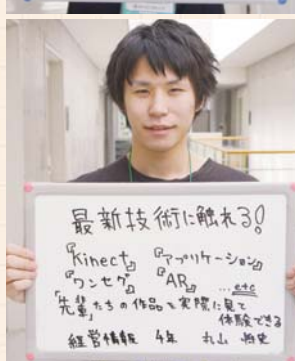 最新技術に触れる!
『Kinect』 『アプリケーション』
『ワンセグ』 『AR』 ...etc
「先輩」たちの作品を実際に見て
体験できる
経営情報 4年 丸山